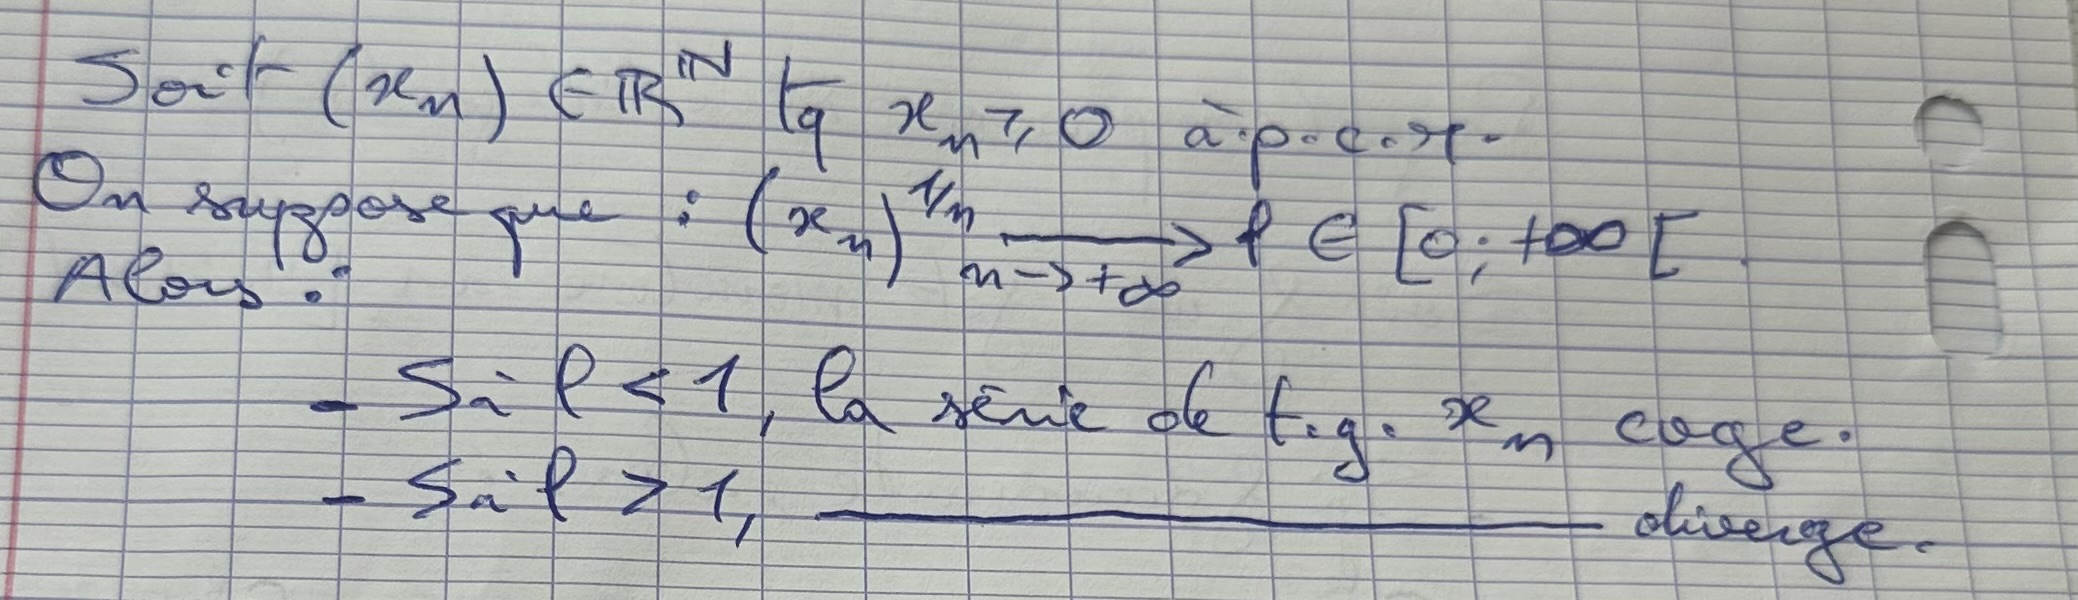 Soit (xₙ) ∈ ℝ^ℕ tq xₙ ⩾ 0 à.p.c.r.
On suppose que : (xₙ)^{1/n} ⟶_{n→+∞} ℓ ∈ [0 ; +∞[.
Alors :
- Si ℓ < 1, la série de t.g. xₙ cvge.
- Si ℓ > 1, ———————— diverge.